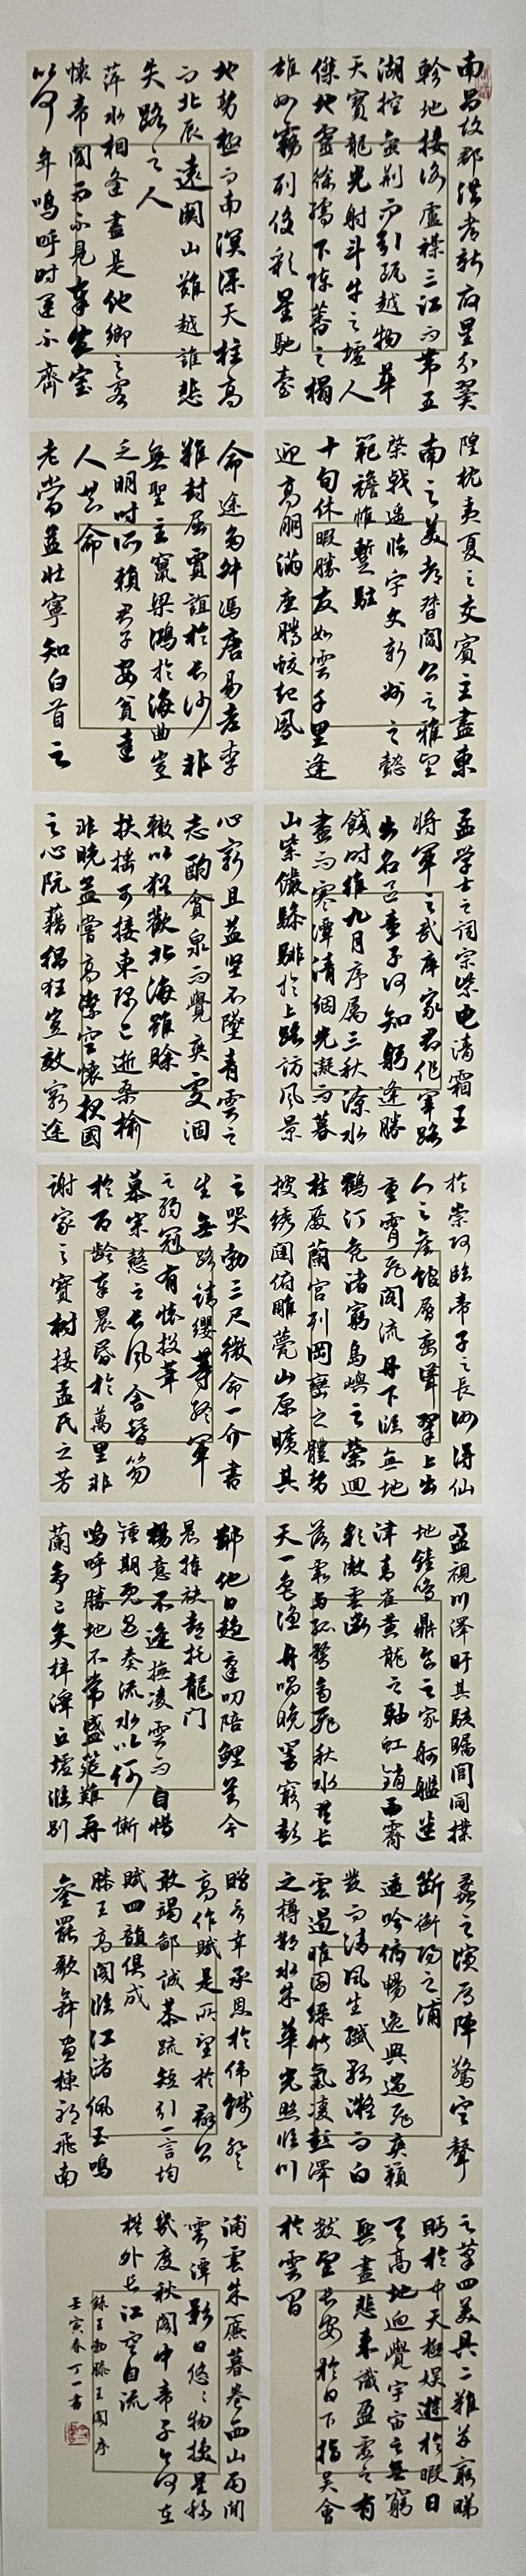 南昌故郡洪都新府星分翼
軫地接衡廬襟三江而帶五
湖控蠻荊而引甌越物華
天寶龍光射斗牛之墟人
傑地靈徐孺下陳蕃之榻
雄州霧列俊彩星馳臺
隍枕夷夏之交賓主盡東
南之美都督閻公之雅望
棨戟遙臨宇文新州之懿
範襜帷暫駐
十旬休暇勝友如雲千里逢
迎高朋滿座騰蛟起鳳
孟學士之詞宗紫電清霜王
將軍之武庫家君作宰路
出名區童子何知躬逢勝
餞時維九月序屬三秋潦水
盡而寒潭清烟光凝而暮
山紫儼驂騑於上路訪風景
於崇阿臨帝子之長洲得仙
人之舊館層巒聳翠上出
重霄飛閣流丹下臨無地
鶴汀鳧渚窮島嶼之縈迴
桂殿蘭宮列岡巒之體勢
披綉闥俯雕甍山原曠其
盈視川澤盱其駭矚閭閻撲
地鐘鳴鼎食之家舸艦迷
津青雀黃龍之軸虹銷雨霽
彩徹雲衢
落霞與孤鶩齊飛秋水共長
天一色漁舟唱晚響窮彭
蠡之濱雁陣驚寒聲
斷衡陽之浦
遙吟俯暢逸興遄飛爽籟
發而清風生纖歌凝而白
雲遏睢園綠竹氣凌彭澤
之樽鄴水朱華光照臨川
之筆四美具二難并窮睇
眄於中天極娛遊於暇日
天高地迥覺宇宙之無窮
興盡悲來識盈虛之有
數望長安於日下指吳會
於雲間
地勢極而南溟深天柱高
而北辰遠關山難越誰悲
失路之人
萍水相逢盡是他鄉之客
懷帝閽而不見奉宣室
以何年嗚呼時運不齊
命途多舛馮唐易老李
難封屈賈誼於長沙非
無聖主竄梁鴻於海曲豈
乏明時所賴君子安貧達
人知命
老當益壯寧知白首之
心窮且益堅不墜青雲之
志酌貪泉而覺爽處涸
轍以猶歡北海雖賒
扶搖可接東隅已逝桑榆
非晚孟嘗高潔空懷報國
之心阮藉猖狂豈效窮途
之哭勃三尺微命一介書
生無路請纓等終軍
之弱冠有懷投筆
慕宗愨之長風舍簪笏
於百齡奉晨昏於萬里非
謝家之寶樹接孟氏之芳
鄰他日趨庭叨陪鯉對今
晨捧袂喜托龍門
楊意不逢撫凌雲而自惜
鍾期既遇奏流水以何慚
嗚呼勝地不常盛筵難再
蘭亭已矣梓澤丘墟臨別
贈言幸承恩於偉餞登
高作賦是所望於群公
敢竭鄙誠恭疏短引一言均
賦四韻俱成
滕王高閣臨江渚佩玉鳴
鑾罷歌舞畫棟朝飛南
浦雲朱簾暮卷西山雨閒
雲潭影日悠悠物換星移
幾度秋閣中帝子今何在
檻外長江空自流
錄王勃滕王閣序
壬寅春丁一書